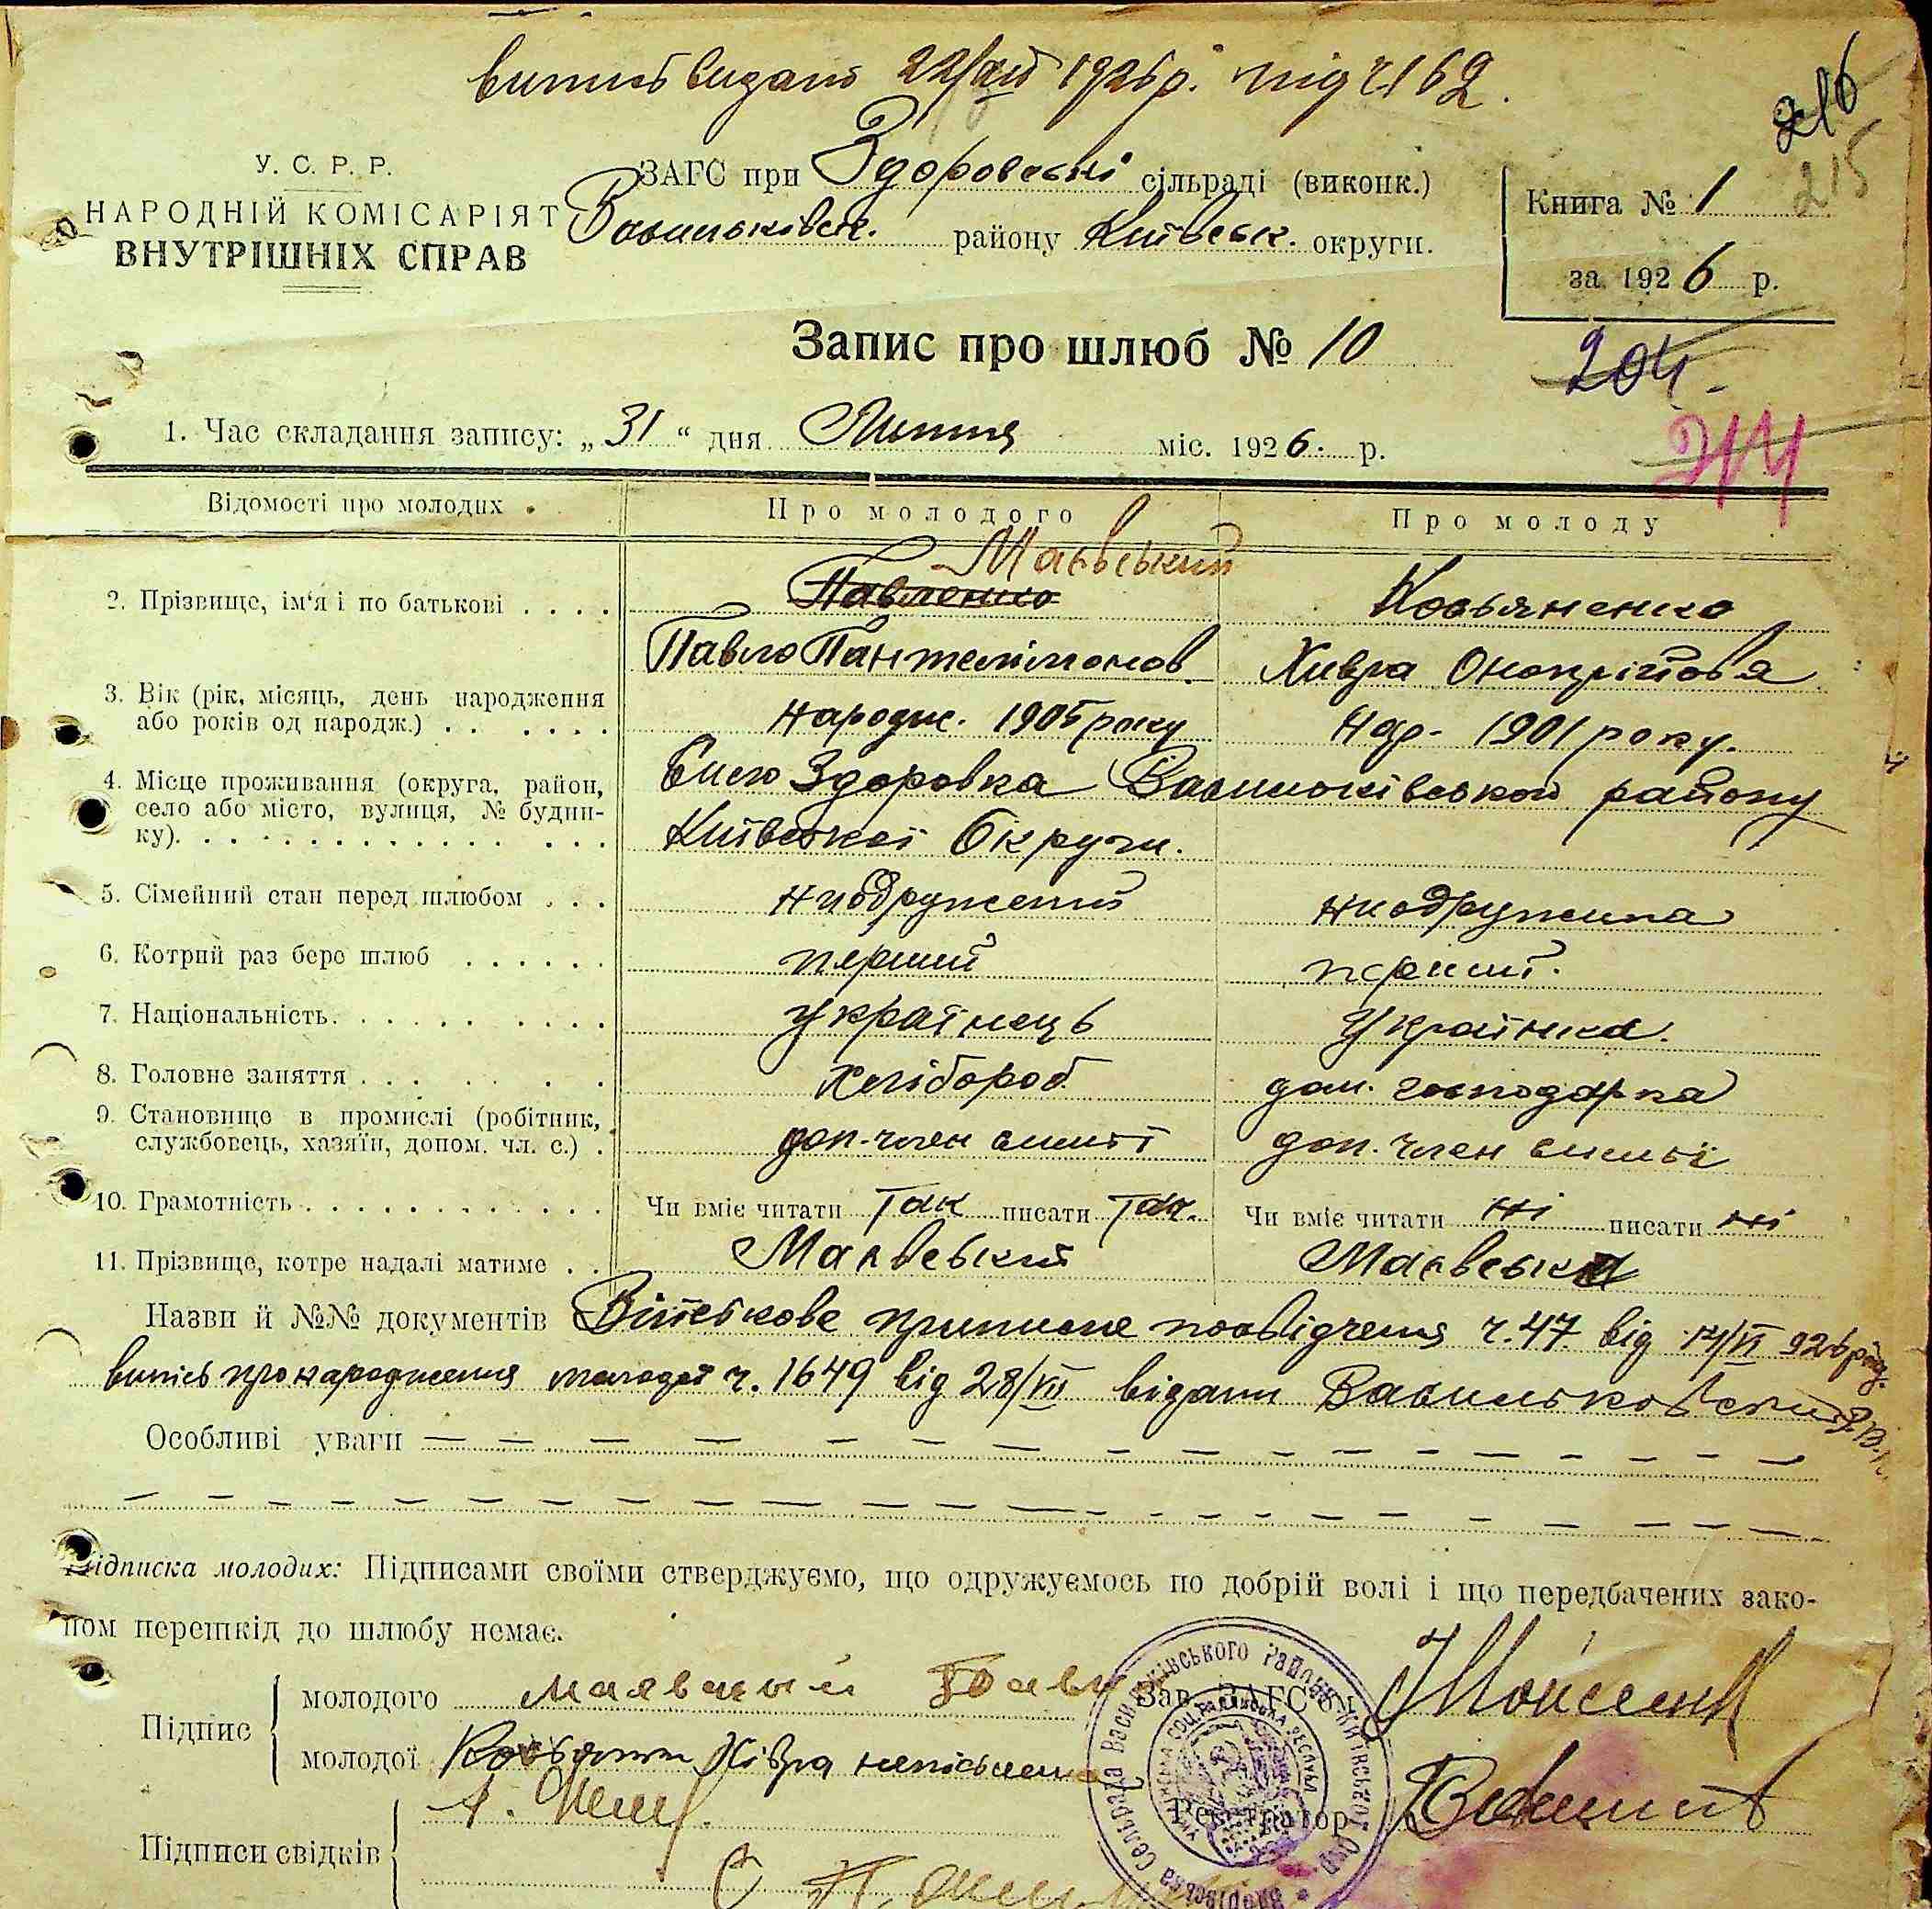 випись видано 22/XII 1926 р. під ч 162.
216
215
У. С. Р. Р.
НАРОДНІЙ КОМІСАРІЯТ
ВНУТРІШНІХ СПРАВ
ЗАГС при Здоровській сільраді (виконк.)
Васильківськ. району Київськ. округи.
Книга № 1
за 1926 р.
Запис про шлюб № 10
204
214
1. Час складання запису: „31“ дня Липня міс. 1926. р.
Відомості про молодих
Про молодого
Про молоду
Маявський
2. Прізвище, ім‘я і по батькові . . . . Павленко Косьяненко
Павло Пантелімонов. Хивра Онопрійов‘а
3. Вік (рік, місяць, день народження
або років од народж.) . . . . . . народж. 1905 року Нар. 1901 року.
4. Місце проживання (округа, район,
село або місто, вулиця, № будин-
ку). Село Здоровка Васильківського району
Київської Округи.
5. Сімейний стан перед шлюбом . . . неодружений неодружена
6. Котрий раз бере шлюб . . . . . . перший перший.
7. Національність. . . . . . . . . українець Українка.
8. Головне заняття . . . . . . хлібороб дом. господарка
9. Становище в промислі (робітник,
службовець, хазяїн, допом. чл. с.) . доп. член сим‘ї доп. член сим‘ї
10. Грамотність . . . . . . . . . . . . Чи вміє читати Так писати Так. Чи вміє читати ні писати ні
11. Прізвище, котре надалі матиме . . Маявський Маявська
Назви й №№ документів Військове приписне посвідчення ч. 47 від
випись про народження молодої ч. 1649 від 28/VII видани
Особливі уваги — — — — — — — — — — — — — —
Підписка молодих: Підписами своїми стверджуємо, що одружуємось по добрій волі і що передбачених зако-
ном перешкід до шлюбу немає.
Підпис
молодого маявский Павл
молодої Хівра неписьмена
Зав. ЗАГС‘у
Реєстратор
Підписи свідків
Здорівська Сельрада Васильківського Району Київської Окр.